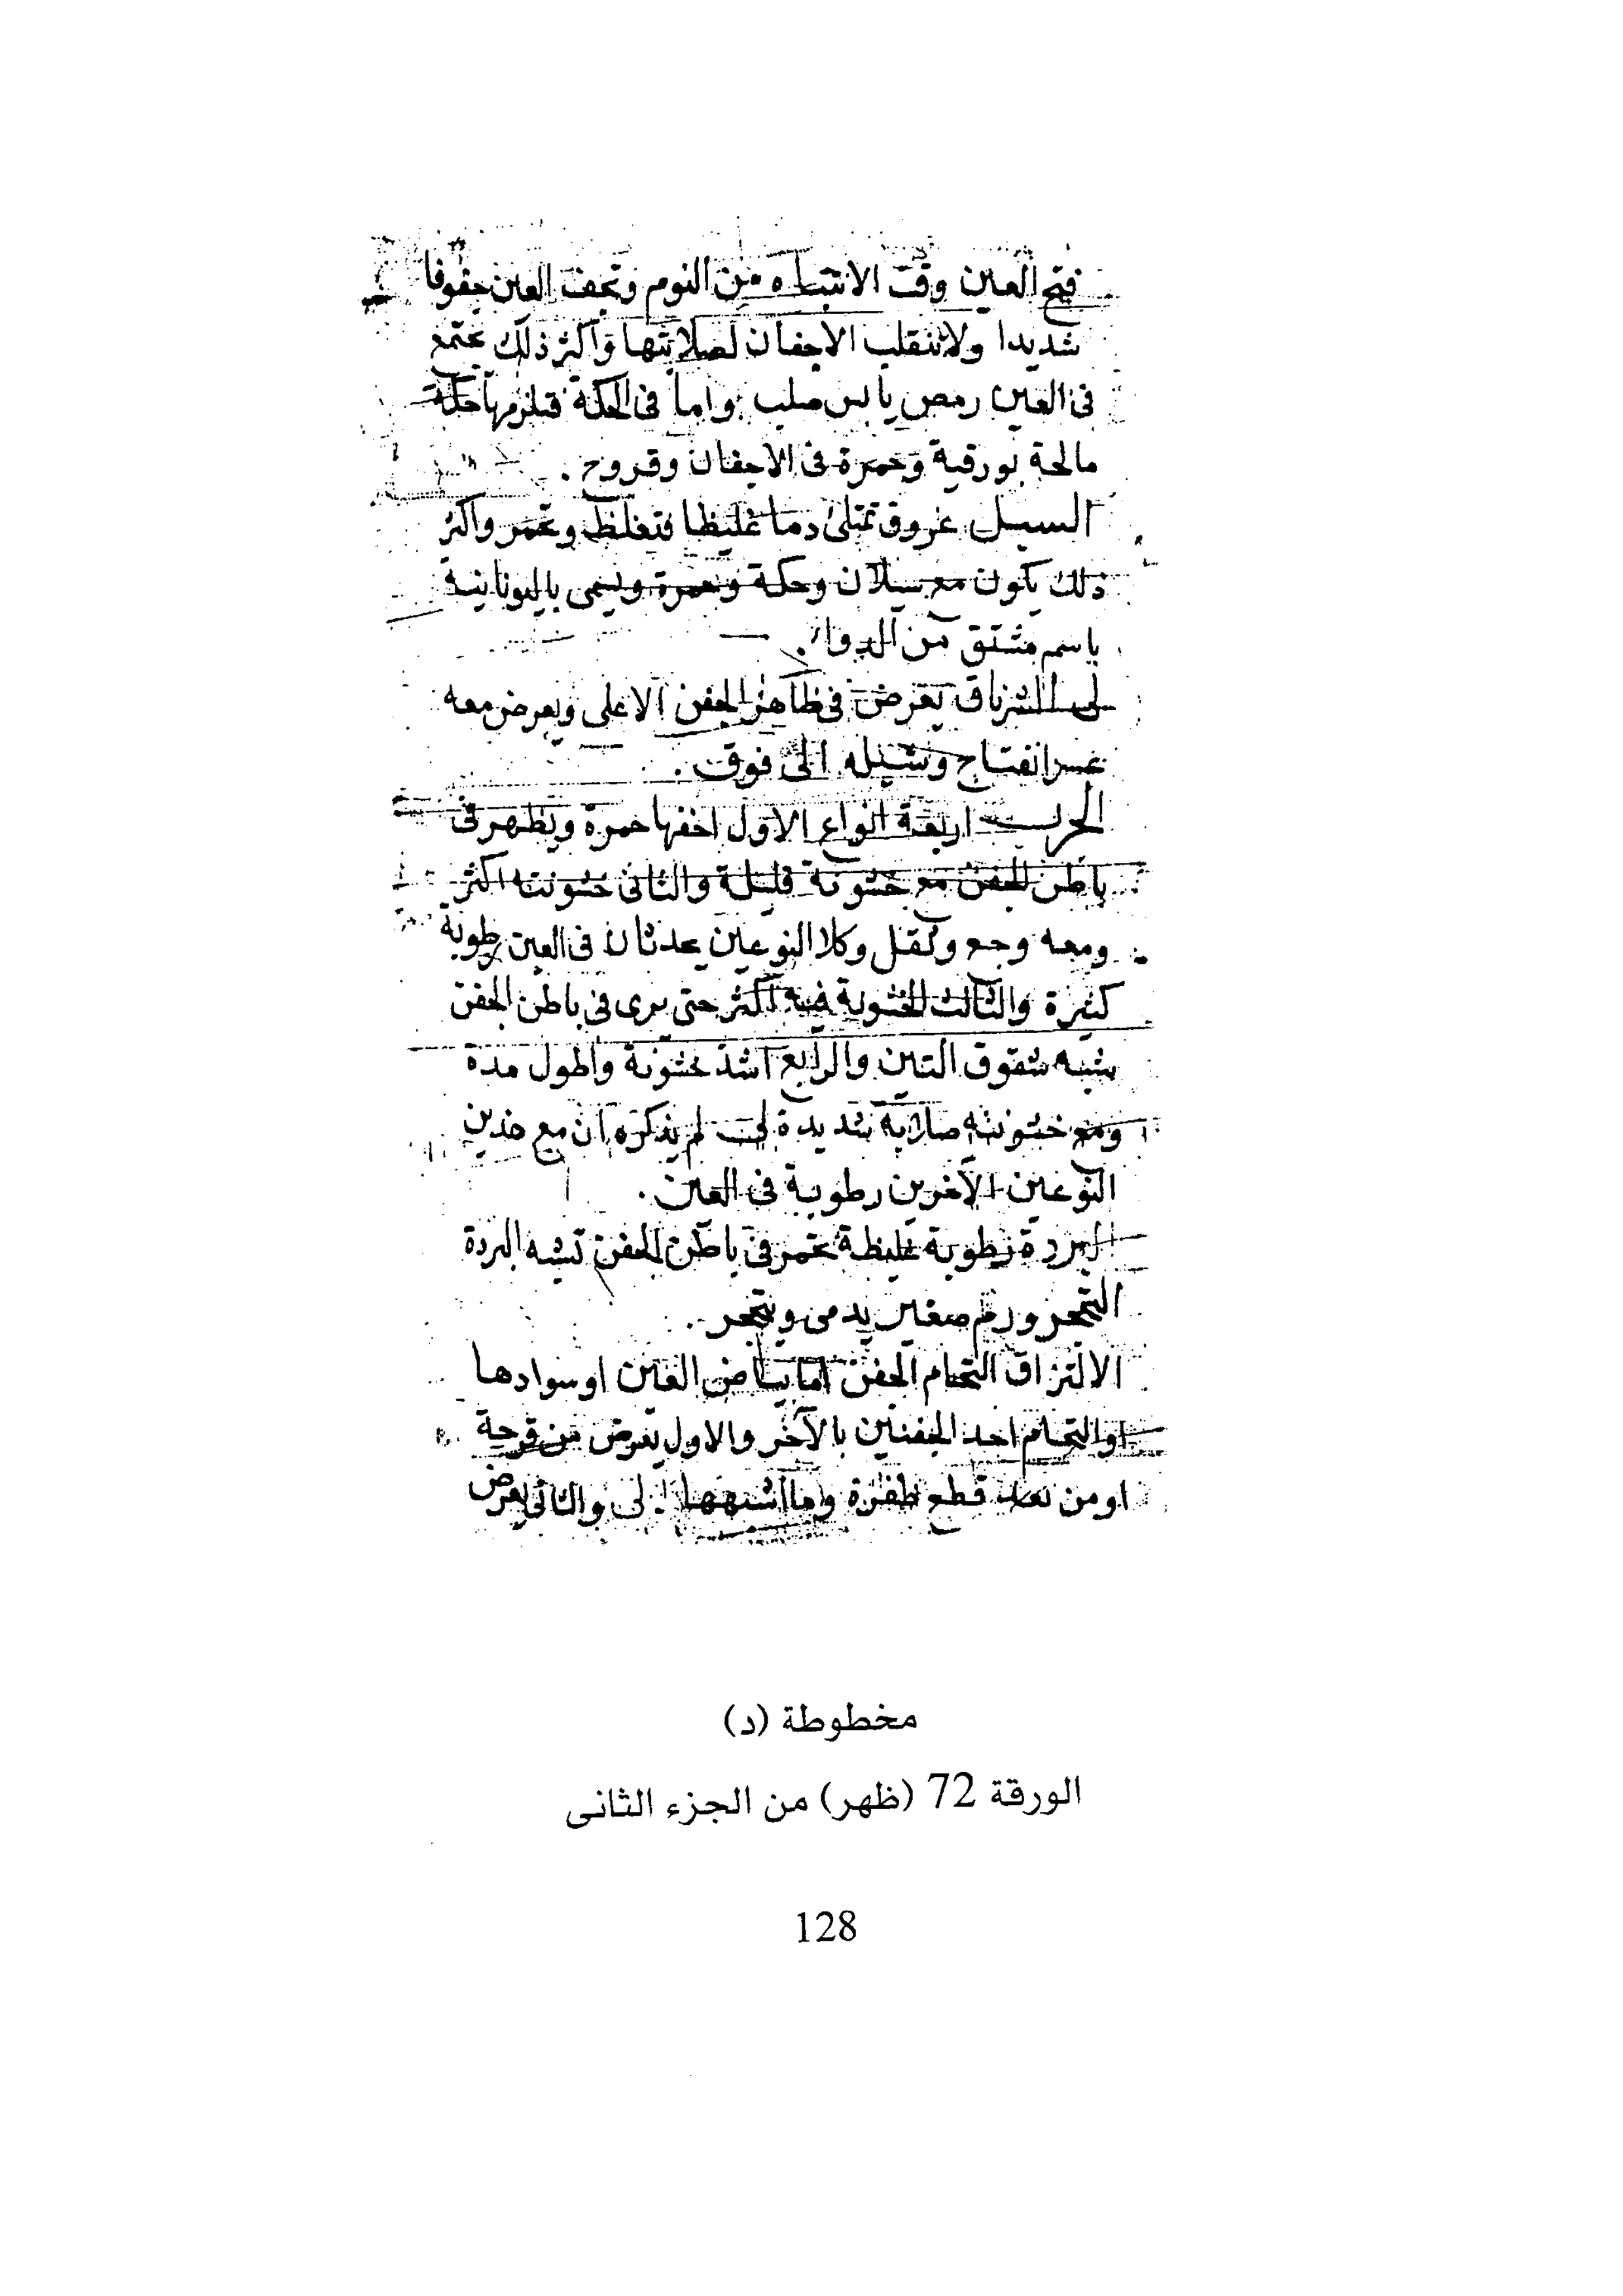 فتح العين وقت الانتباه من النوم وتجف العين جفوفا
شديدا ولا تنقلب الاجفان لصلابتها واكثر ذلك يجتمع
فى العين رمص يابس صلب واما فى الحكة فتلزمها حكة
مالحة بورقية وحمرة فى الاجفان وقروح .
السبل عروق تمتلئ دما غليظا فتغلظ وتحمر واكثر
ذلك يكون مع سيلان وحكة وحمرة ويسمى باليونانية
باسم مشتق من الدوا .
لى الشرناق يعرض فى ظاهر الجفن الاعلى ويعرض معه
عسر انفتاح وشيله الى فوق .
الجرب اربعة انواع الاول اخفها حمرة ويظهر فى
باطن الجفن مع خشونة قليلة والثانى خشونته اكثر
ومعه وجع وثقل وكلا النوعين يحدثان فى العين رطوبة
كثيرة والثالث الخشونة فيه اكثر حتى يرى فى باطن الجفن
شبه شقوق التين والرابع اشد خشونة واطول مدة
ومع خشونته صلابة شديدة لى لم يذكره ان مع هذين
النوعين الاخرين رطوبة فى العين .
البردة رطوبة غليظة تحمر فى باطن الجفن تشبه البردة
التحجر ورم صغير يدمى ويتحجر .
الالتزاق التحام الجفن اما ببياض العين او سوادها
او التحام احد الجفنين بالآخر والاول يعرض من قرحة
او من بعد قطع ظفرة وما اشبهها . لى والثانى يعرض
مخطوطة (د)
الورقة 72 (ظهر) من الجزء الثانى
128